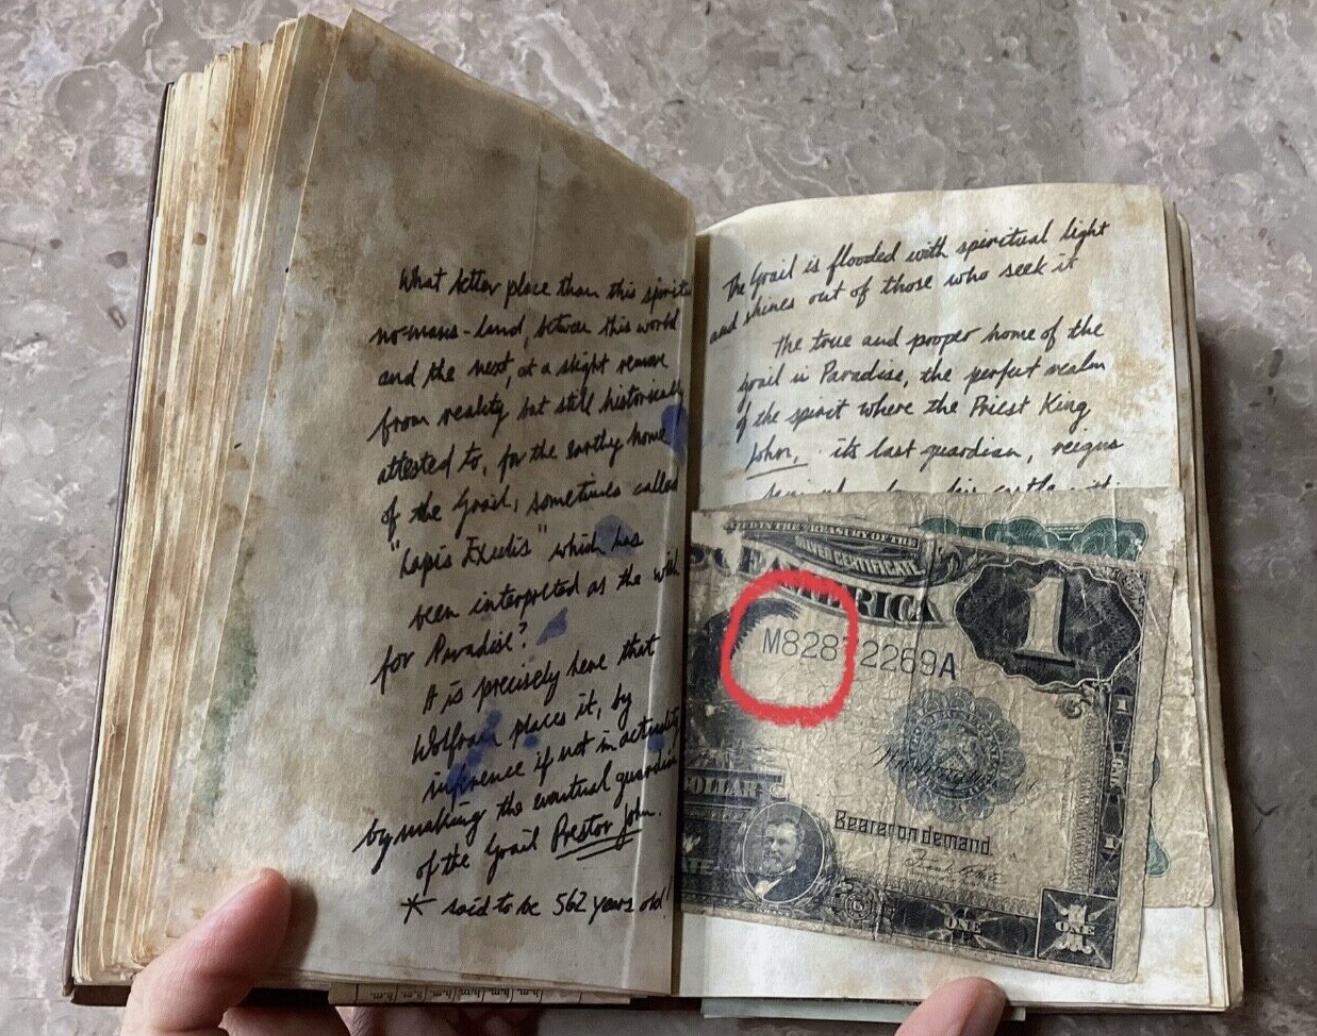 What better place than this spiritu
no-mans-land, between this world
and the next, at a slight remove
from reality but still historically
attested to, for the earthy home
of the Grail, sometimes called
"Lapis Exilis" which has
been interpreted as the wish
for Paradise?
It is precisely here that
Wolfram places it, by
inference if not in actuality
by making the eventual guardian
of the Grail Prestor John.
* said to be 562 years old!
The Grail is flooded with spiritual light
and shines out of those who seek it
The true and proper home of the
grail is Paradise, the perfect realm
of the spirit where the Priest King
John, its last guardian, reigns
castle
IN THE TREASURY OF THE
SILVER CERTIFICATE
OF AMERICA
1
M82872269A
DOLLAR
Bearer on demand
ONE
ONE